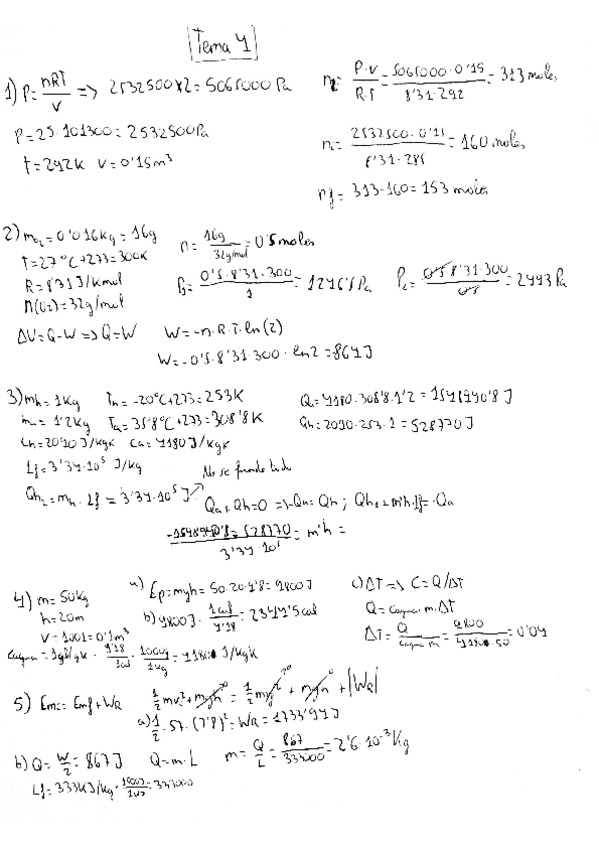 Tema 4
1) P = nRT/V => 2532500x2 = 5065000 Pa
n2 = P·v/R·T = 5065000·0'15/8'31·292 = 313 moles
P = 25·101300 = 2532500 Pa
T = 292K V = 0'15 m³
n1 = 2532500·0'15/8'31·285 = 160 moles
nf = 313-160 = 153 moles
2) mO2 = 0'016 kg = 16g
n = 16g/32g/mol = 0'5 moles
T = 27°C+273 = 300K
R = 8'31 J/kmol
M(O2) = 32g/mol
P1 = 0'5·8'31·300/1 = 1246'5 Pa
P2 = 0'5·8'31·300/0'5 = 2493 Pa
ΔU = Q-W => Q = W W = -n·R·T·ln(2)
W = -0'5·8'31·300·ln2 = 864 J
3) mh = 1kg Th = -20°C+273 = 253K
Qa = 4180·308'8·1'2 = 1548940'8 J
m = 1'2kg Ta = 35'8°C+273 = 308'8K
Qh = 2090·253·1 = 528770 J
Ch = 2090 J/kgK Ca = 4180 J/kgK
Lf = 3'34·10⁵ J/kg
No se funde todo
Qh2 = mh·Lf = 3'34·10⁵ J
Qa + Qh = 0 => -Qa = Qh ; Qh1 + m'h·Lf = -Qa
-1548940'8 = 528770/3'34·10⁵ = m'h =
4) m = 50kg
a) Ep = mgh = 50·20·9'8 = 9800 J
c) ΔT => C = Q/ΔT
h = 20m
b) 9800 J · 1cal/4'18 = 2344'5 cal
Q = Cagua·m·ΔT
V = 100l = 0'1m³
ΔT = Q/Cagua·m = 9800/41800·50 = 0'04
5) Emi = Emf + WR ½mv² + mgh⁰ = ½mv²⁰ + mgh⁰ + |WR|
a) ½·57·(7'8)² = WR = 1733'94 J
b) Q = W/2 = 867 J Q = m·L m = Q/L = 867/333000 = 2'6·10⁻³ kg
Lf = 333KJ/kg · 1000J/1KJ = 333000